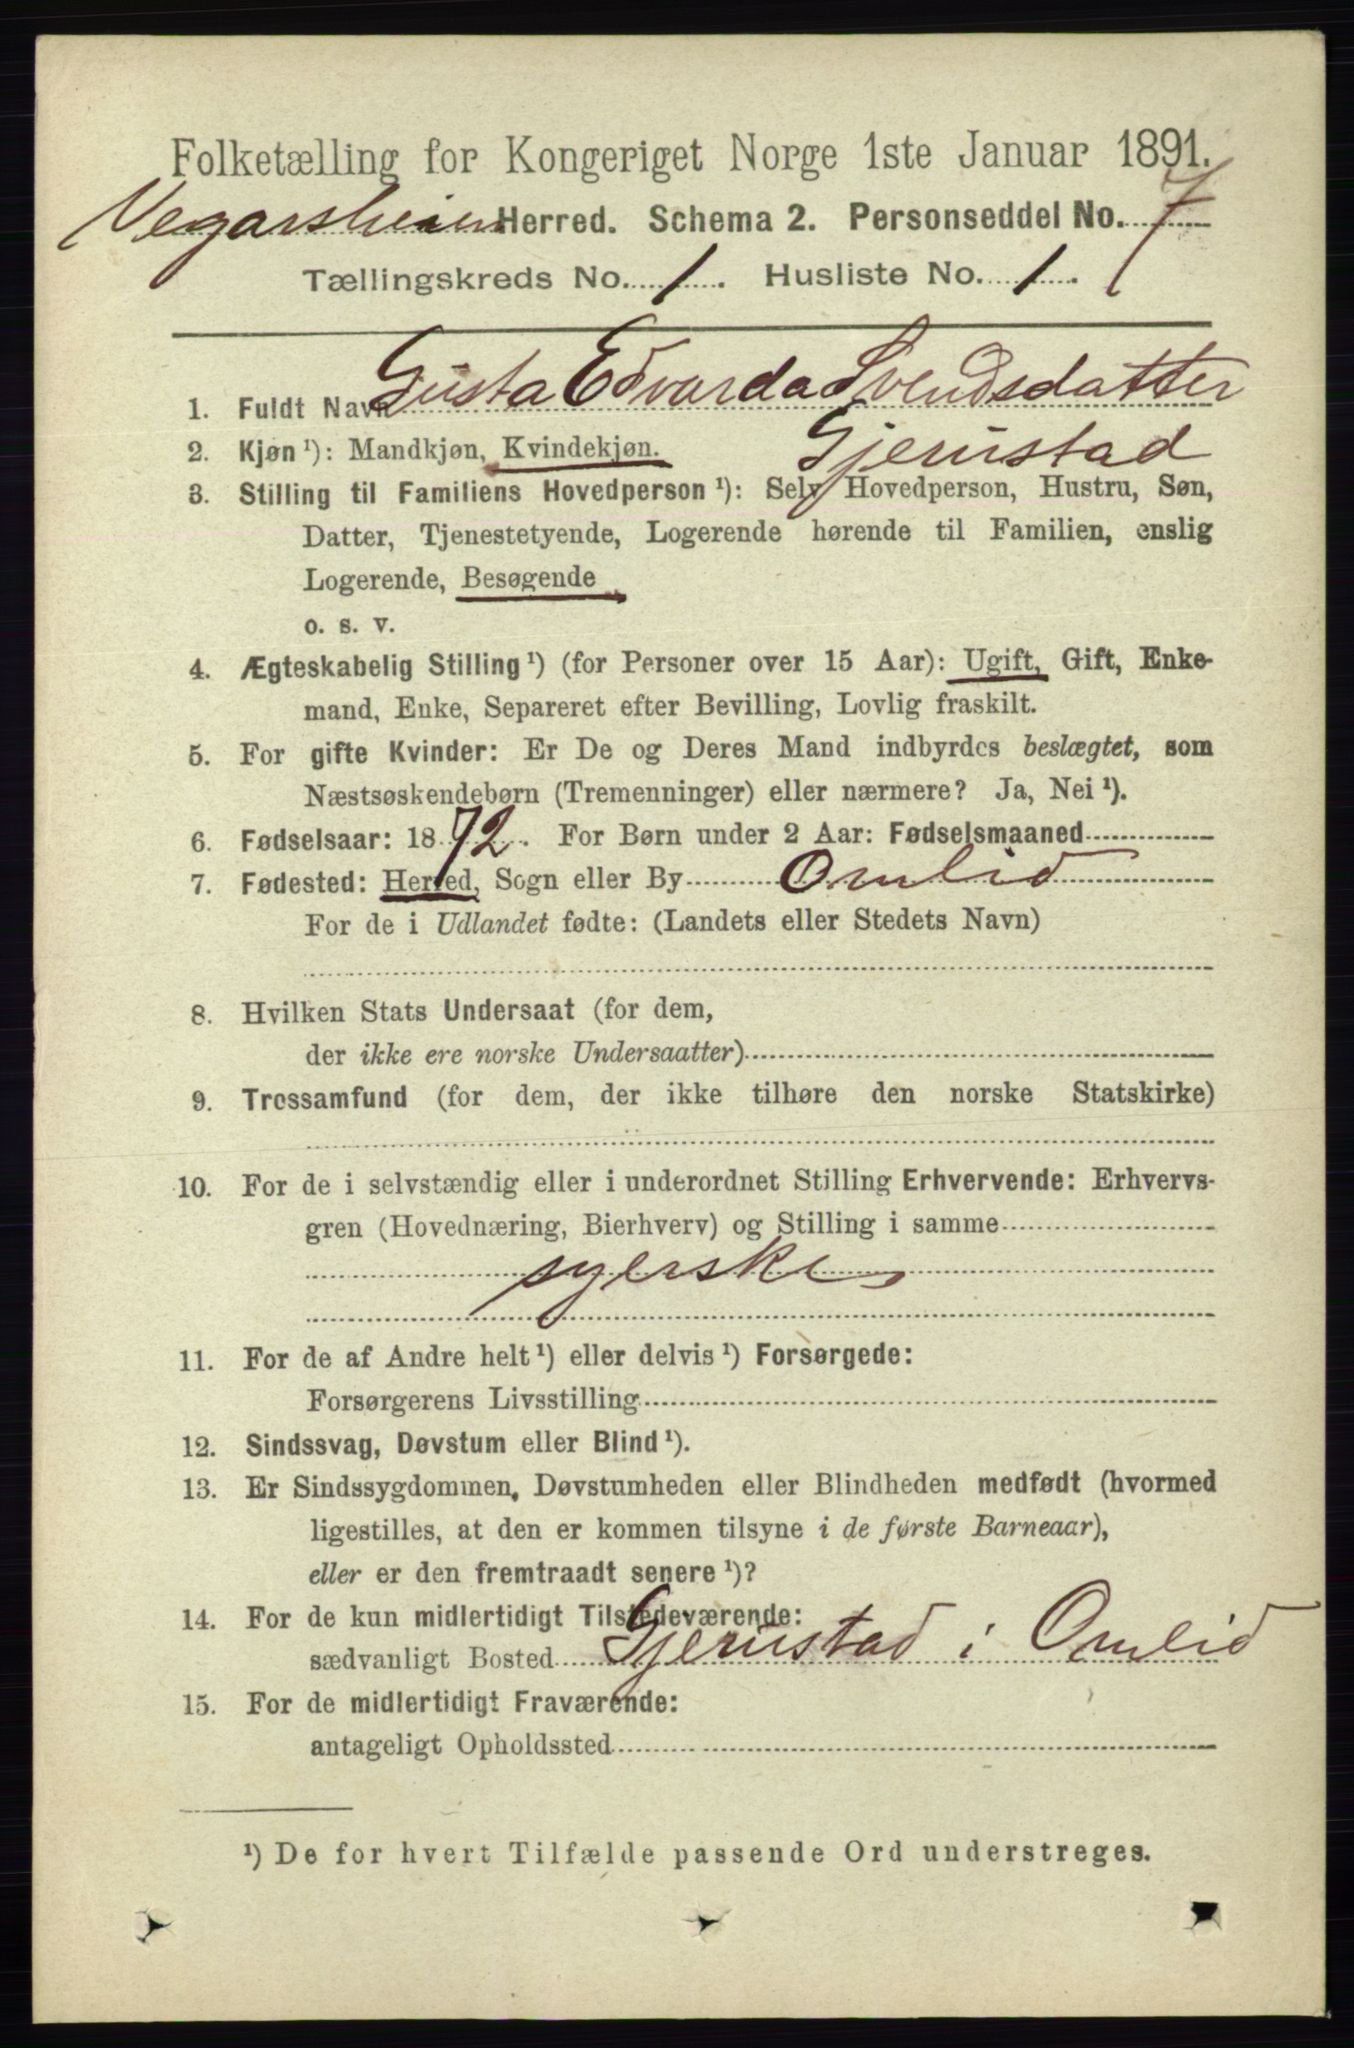 Folketælling for Kongeriget Norge 1ste Januar 1891.
Vegarsheien Herred. Schema 2. Personseddel No. 7
Tællingskreds No. 1. Husliste No. 1.
1. Fuldt Navn Gusta Edvarda Svendsdatter
Gjerustad
2. Kjøn¹): Mandkjøn, Kvindekjøn.
3. Stilling til Familiens Hovedperson¹): Selv Hovedperson, Hustru, Søn,
Datter, Tjenestetyende, Logerende hørende til Familien, enslig
Logerende, Besøgende
o. s. v.
4. Ægteskabelig Stilling¹) (for Personer over 15 Aar): Ugift, Gift, Enke-
mand, Enke, Separeret efter Bevilling, Lovlig fraskilt.
5. For gifte Kvinder: Er De og Deres Mand indbyrdes beslægtet, som
Næstsøskendebørn (Tremenninger) eller nærmere? Ja, Nei¹).
6. Fødselsaar: 1872. For Børn under 2 Aar: Fødselsmaaned
7. Fødested: Herred, Sogn eller By Omlid
For de i Udlandet fødte: (Landets eller Stedets Navn)
8. Hvilken Stats Undersaat (for dem,
der ikke ere norske Undersaatter)
9. Trossamfund (for dem, der ikke tilhøre den norske Statskirke)
10. For de i selvstændig eller i underordnet Stilling Erhvervende: Erhvervs-
gren (Hovednæring, Bierhverv) og Stilling i samme
syerske
11. For de af Andre helt¹) eller delvis¹) Forsørgede:
Forsørgerens Livsstilling
12. Sindssvag, Døvstum eller Blind¹).
13. Er Sindssygdommen, Døvstumheden eller Blindheden medfødt (hvormed
ligestilles, at den er kommen tilsyne i de første Barneaar),
eller er den fremtraadt senere¹)?
14. For de kun midlertidigt Tilstedeværende:
sædvanligt Bosted Gjerustad i Omlid
15. For de midlertidigt Fraværende:
antageligt Opholdssted
¹) De for hvert Tilfælde passende Ord understreges.